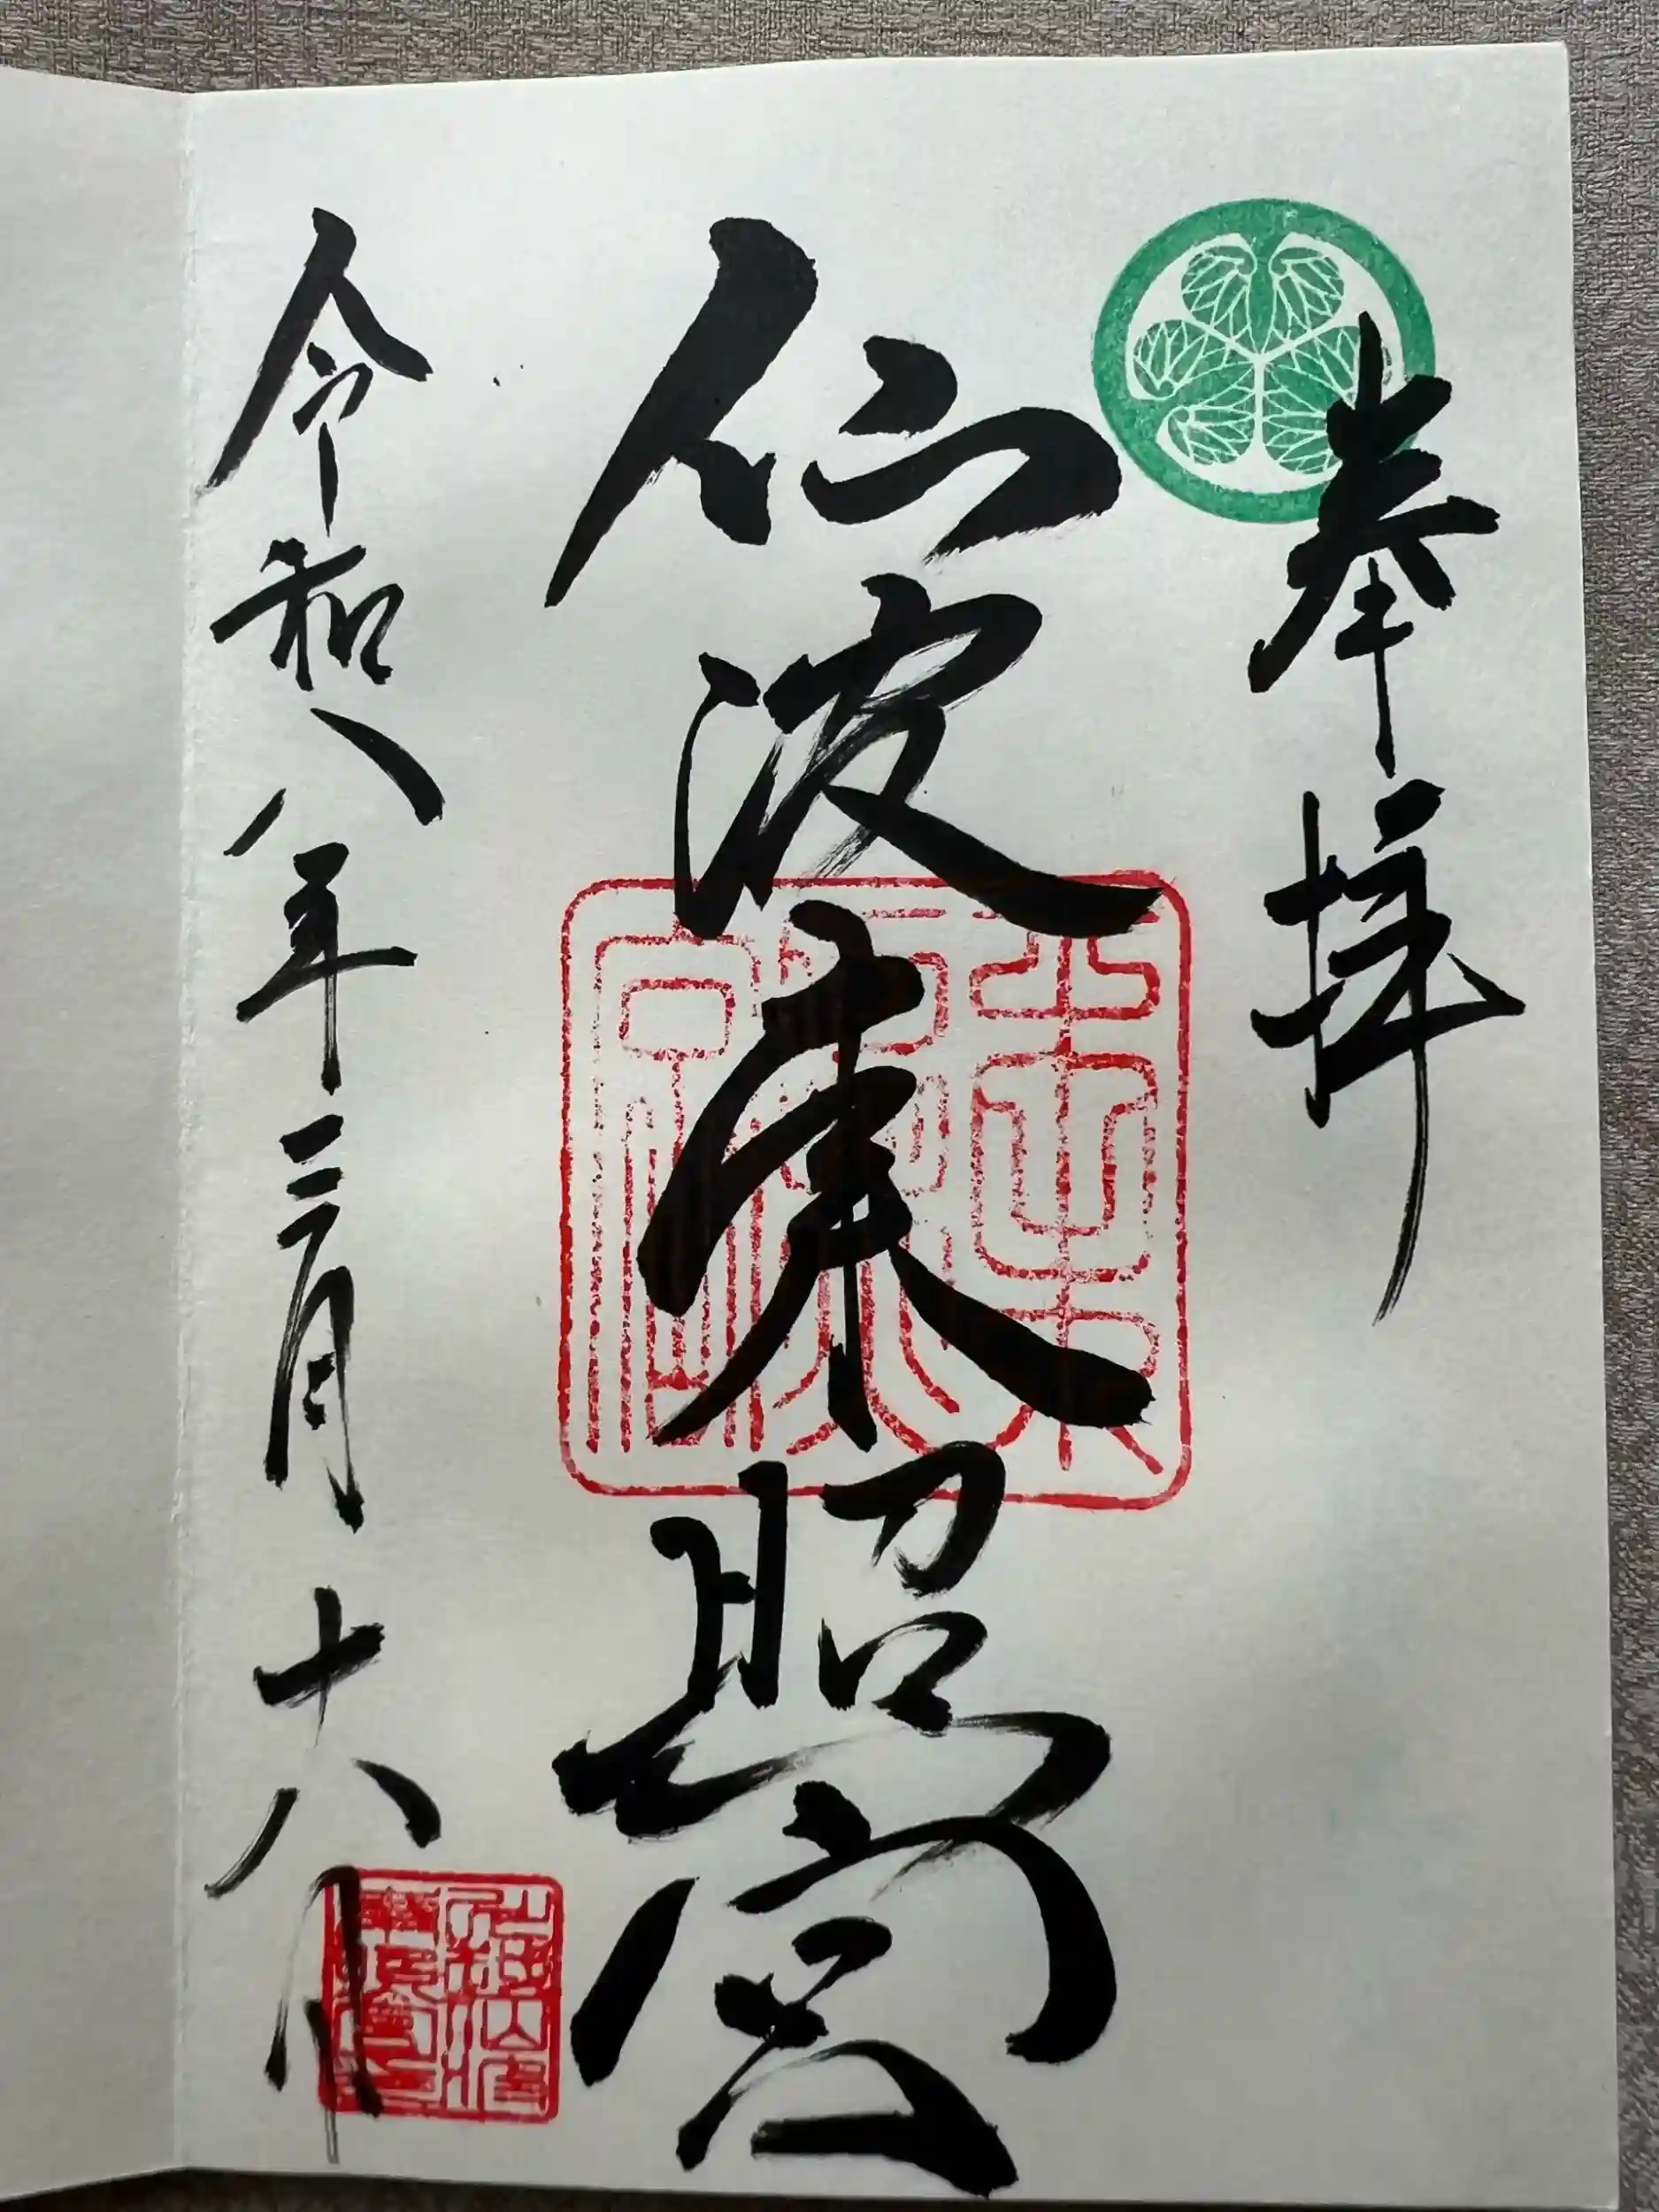 奉拝
仙波東照宮
令和八年三月十八日